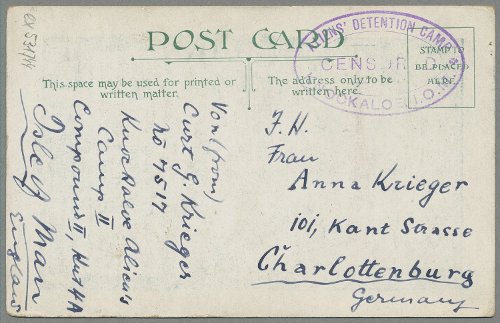 CX 534/44
POST CARD
ALIENS' DETENTION CAMP
CENSOR
KNOCKALOE, I.O.M.
STAMP TO
BE PLACED
HERE.
This space may be used for printed or
written matter.
The address only to be
written here.
Von (from)
Curt G. Krieger
No 7517
Knockaloe Alien's
Camp II
Compound II, Hut 4A
Isle of Man
England
F. H.
Frau
Anna Krieger
101, Kant Strasse
Charlottenburg
Germany